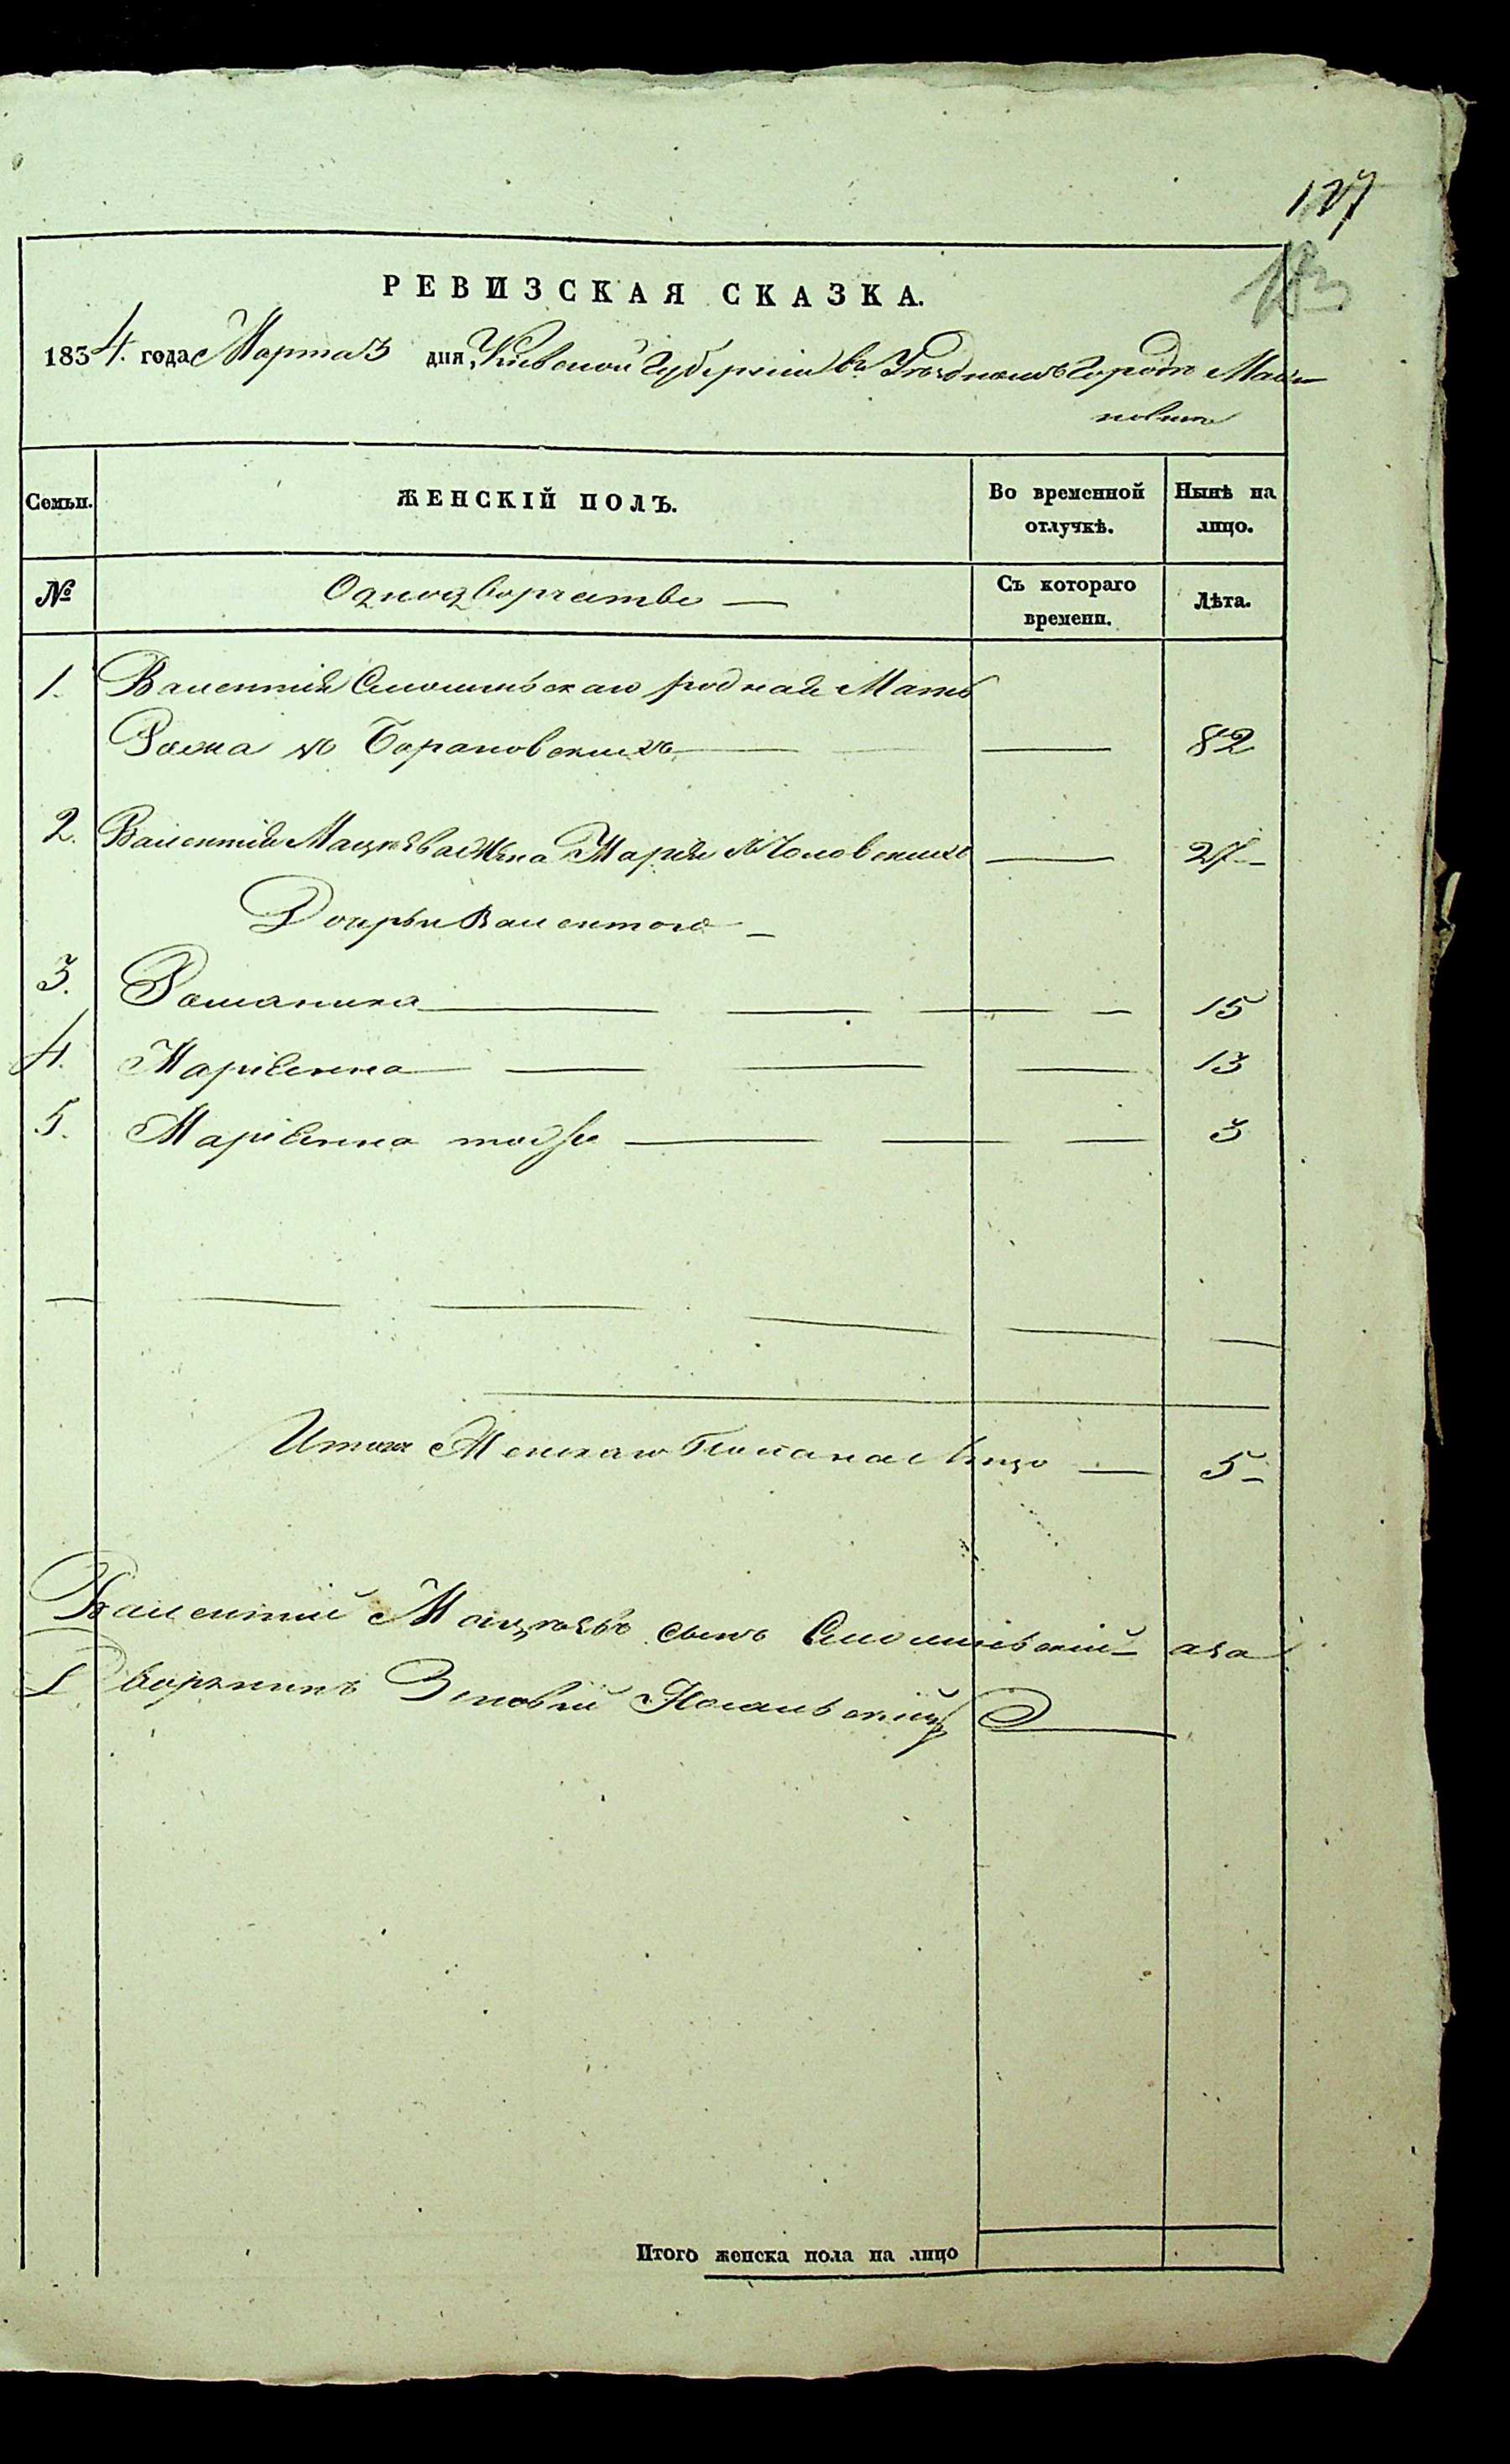 127
РЕВИЗСКАЯ СКАЗКА.
1834. года Марта 3 дня, Кіевской Губерніи въ Уездномъ Городе Махновке
Семьи. ЖЕНСКІЙ ПОЛЪ. Во временной отлучкѣ. Нынѣ на лицо.
№ Однодворчестве — Съ котораго времени. Лѣта.
1. Валентія родная Мать
Роза съ Барановскихъ — — 82
2. Валентія Мацѣева Жена Марія — 27
Дочери Валентого
3. Романика — — — 15
4. Маріанна — — — 13
5. Маріанна тоже — — — 3
Итого Женскаго Пола на Лицо — 5
Валентій Мацѣевъ сынъ а за
Дворянинъ
Итого женска пола на лицо